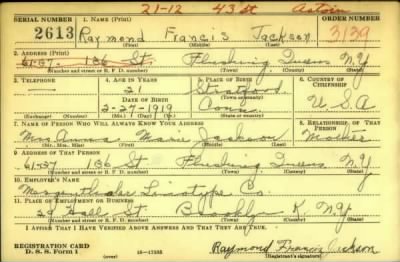 21-12 43 St Astoria
SERIAL NUMBER 1. NAME (Print) ORDER NUMBER
2613 Raymond Francis Jackson 3139
(First) (Middle) (Last)
2. ADDRESS (Print)
61-37 136 St. Flushing Queens N.Y
(Number and street or R. F. D. number) (Town) (County) (State)
3. TELEPHONE 4. AGE IN YEARS 5. PLACE OF BIRTH 6. COUNTRY OF CITIZENSHIP
21 Stratford
DATE OF BIRTH (Town or county)
2-27-1919 Conn. U S A
(Exchange) (Number) (Mo.) (Day) (Yr.) (State or country)
7. NAME OF PERSON WHO WILL ALWAYS KNOW YOUR ADDRESS 8. RELATIONSHIP OF THAT PERSON
Mrs. Anna Marie Jackson Mother
(Mr., Mrs., Miss) (First) (Middle) (Last)
9. ADDRESS OF THAT PERSON
61-37 136 St Flushing Queens N.Y
(Number and street or R. F. D. number) (Town) (County) (State)
10. EMPLOYER'S NAME
Mergenthaler Linotype Co.
11. PLACE OF EMPLOYMENT OR BUSINESS
29 Hall St. Brooklyn K. N.Y.
(Number and street or R. F. D. number) (Town) (County) (State)
I AFFIRM THAT I HAVE VERIFIED ABOVE ANSWERS AND THAT THEY ARE TRUE.
REGISTRATION CARD
D. S. S. Form 1 (over) 16-17105 Raymond Francis Jackson
(Registrant's signature)